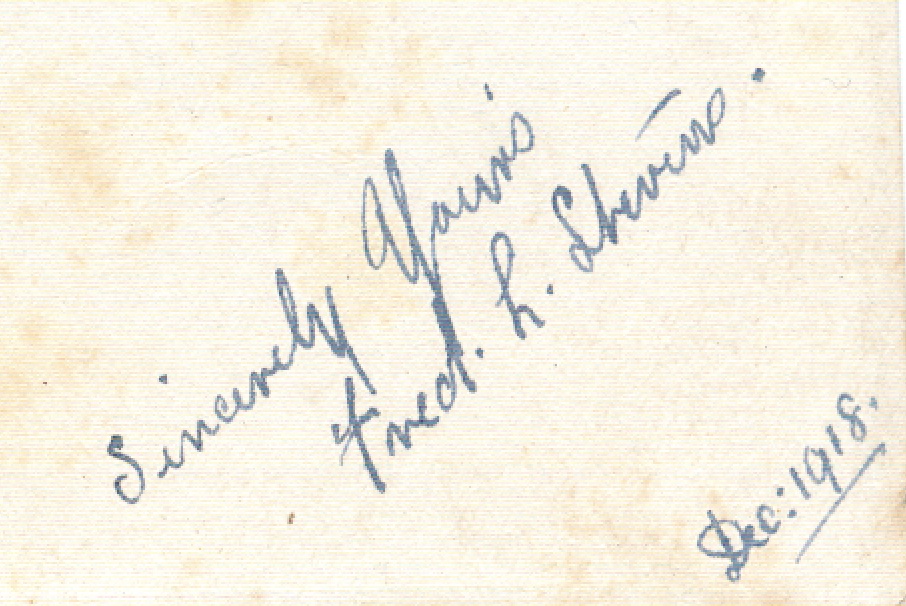 Sincerely Yours
Fred. L. Stevens.
Dec: 1918.